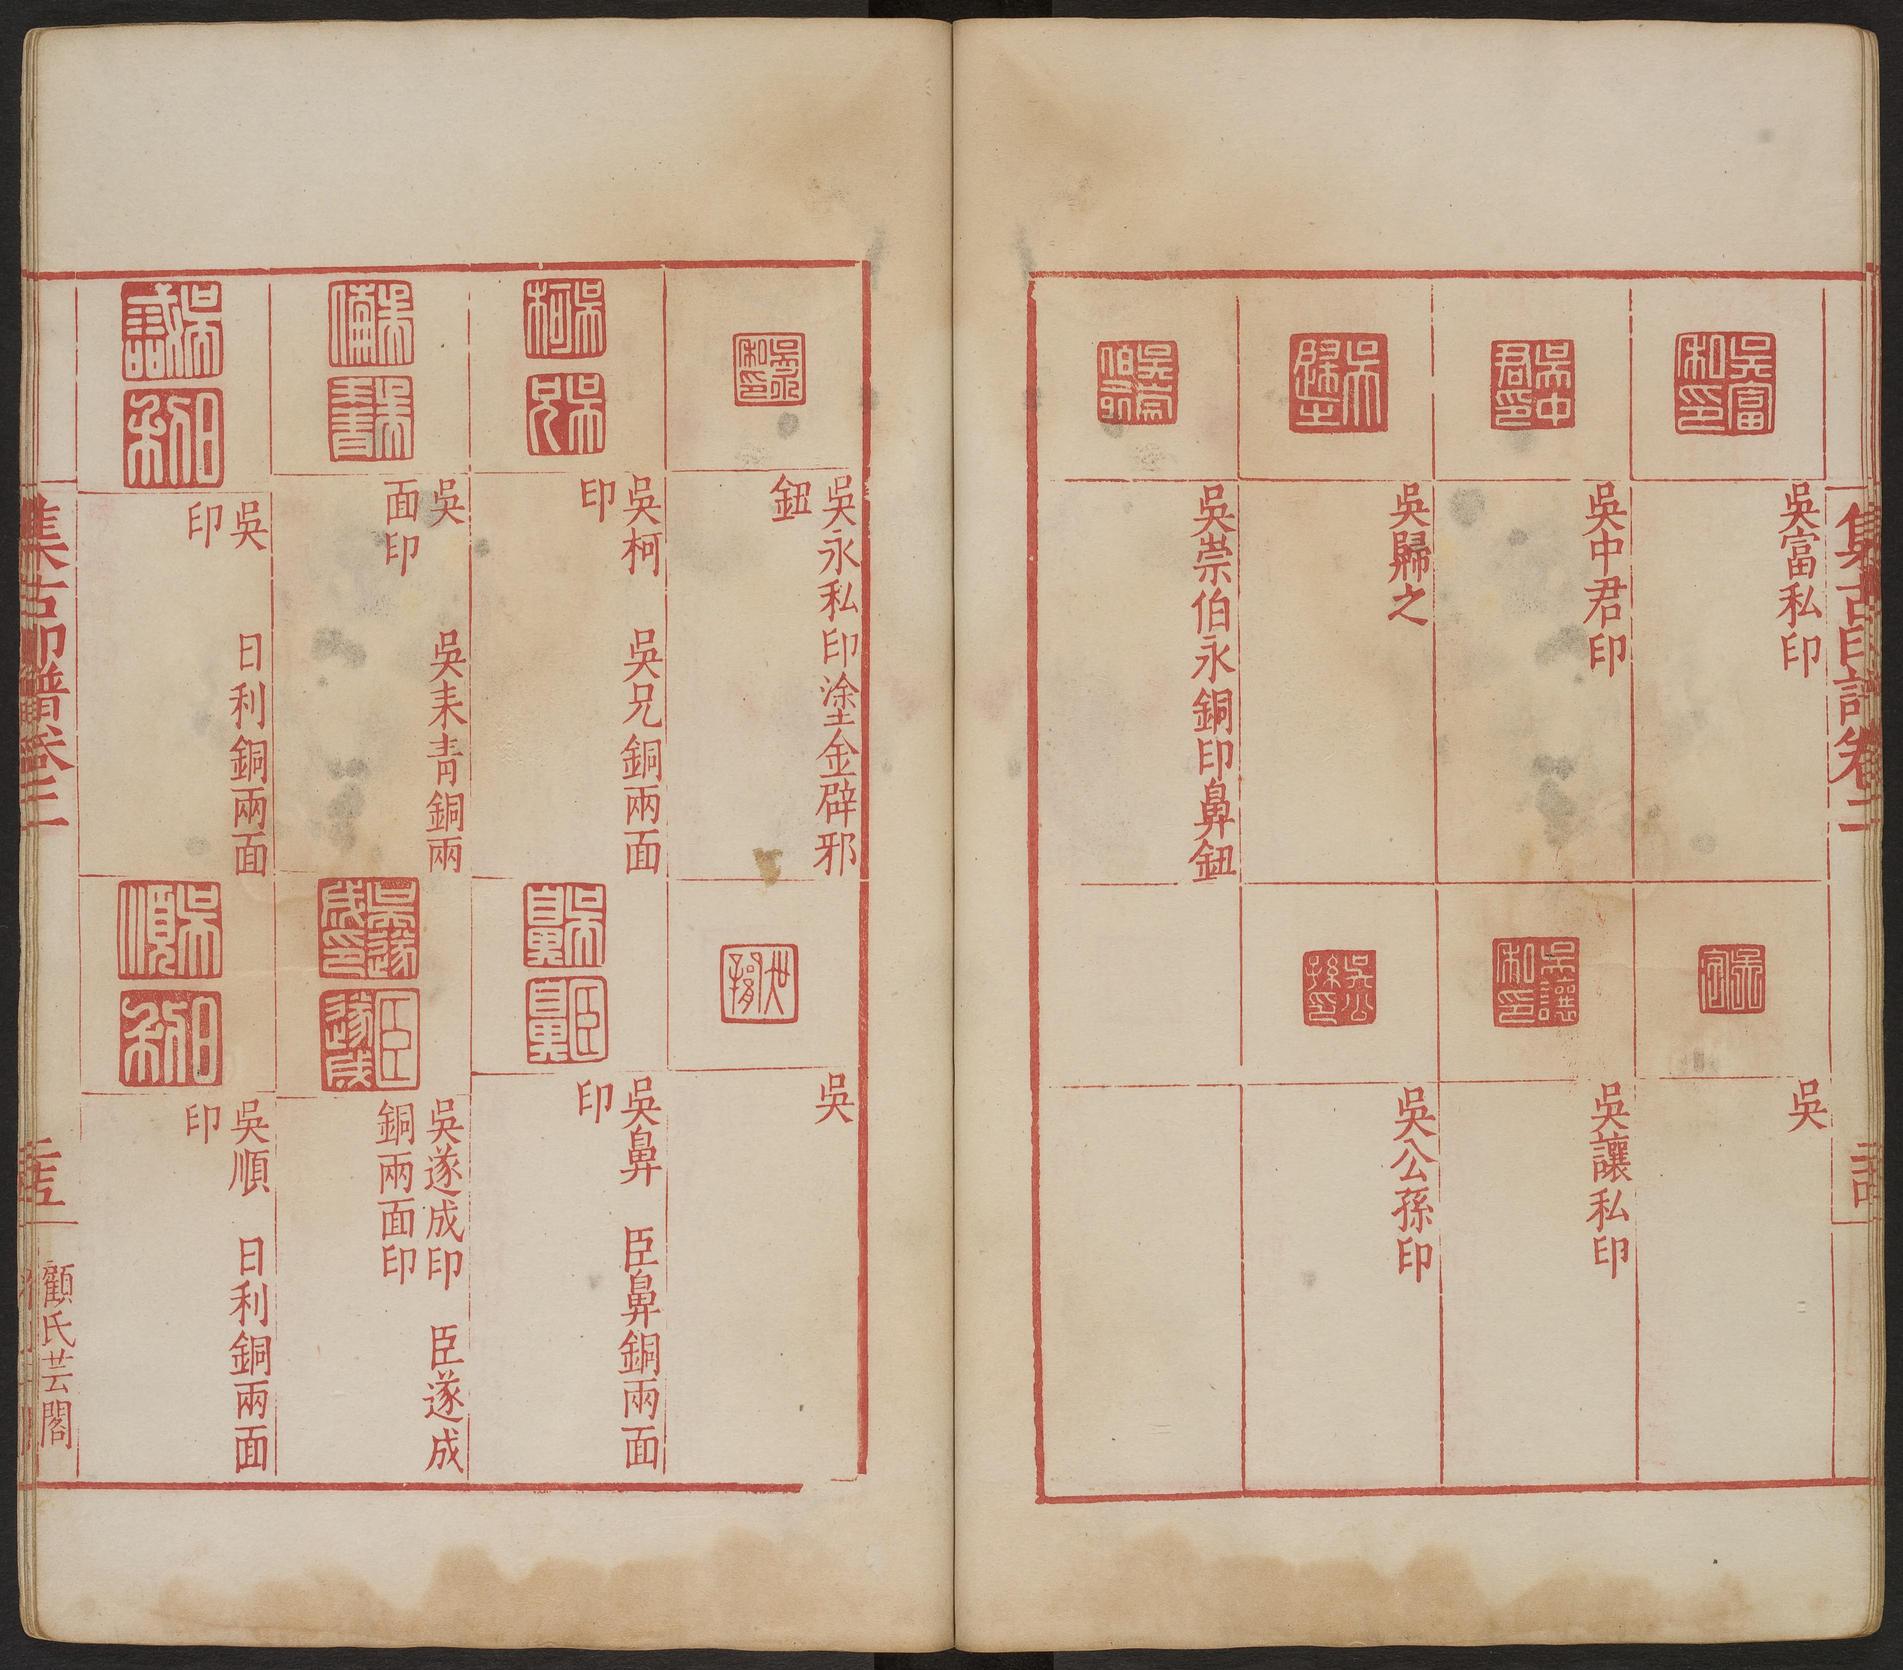 集古印譜卷二
吳富私印
吳中君印
吳歸之
吳崇伯永銅印鼻鈕
吳
吳讓私印
吳公孫印
吳永私印塗金辟邪
鈕
吳柯 吳兄銅兩面
印
吳 吳耒青銅兩
面印
吳 日利銅兩面
印
吳
吳鼻 臣鼻銅兩面
印
吳遂成印 臣遂成
銅兩面印
吳順 日利銅兩面
印
集古印譜卷三
顧氏芸閣